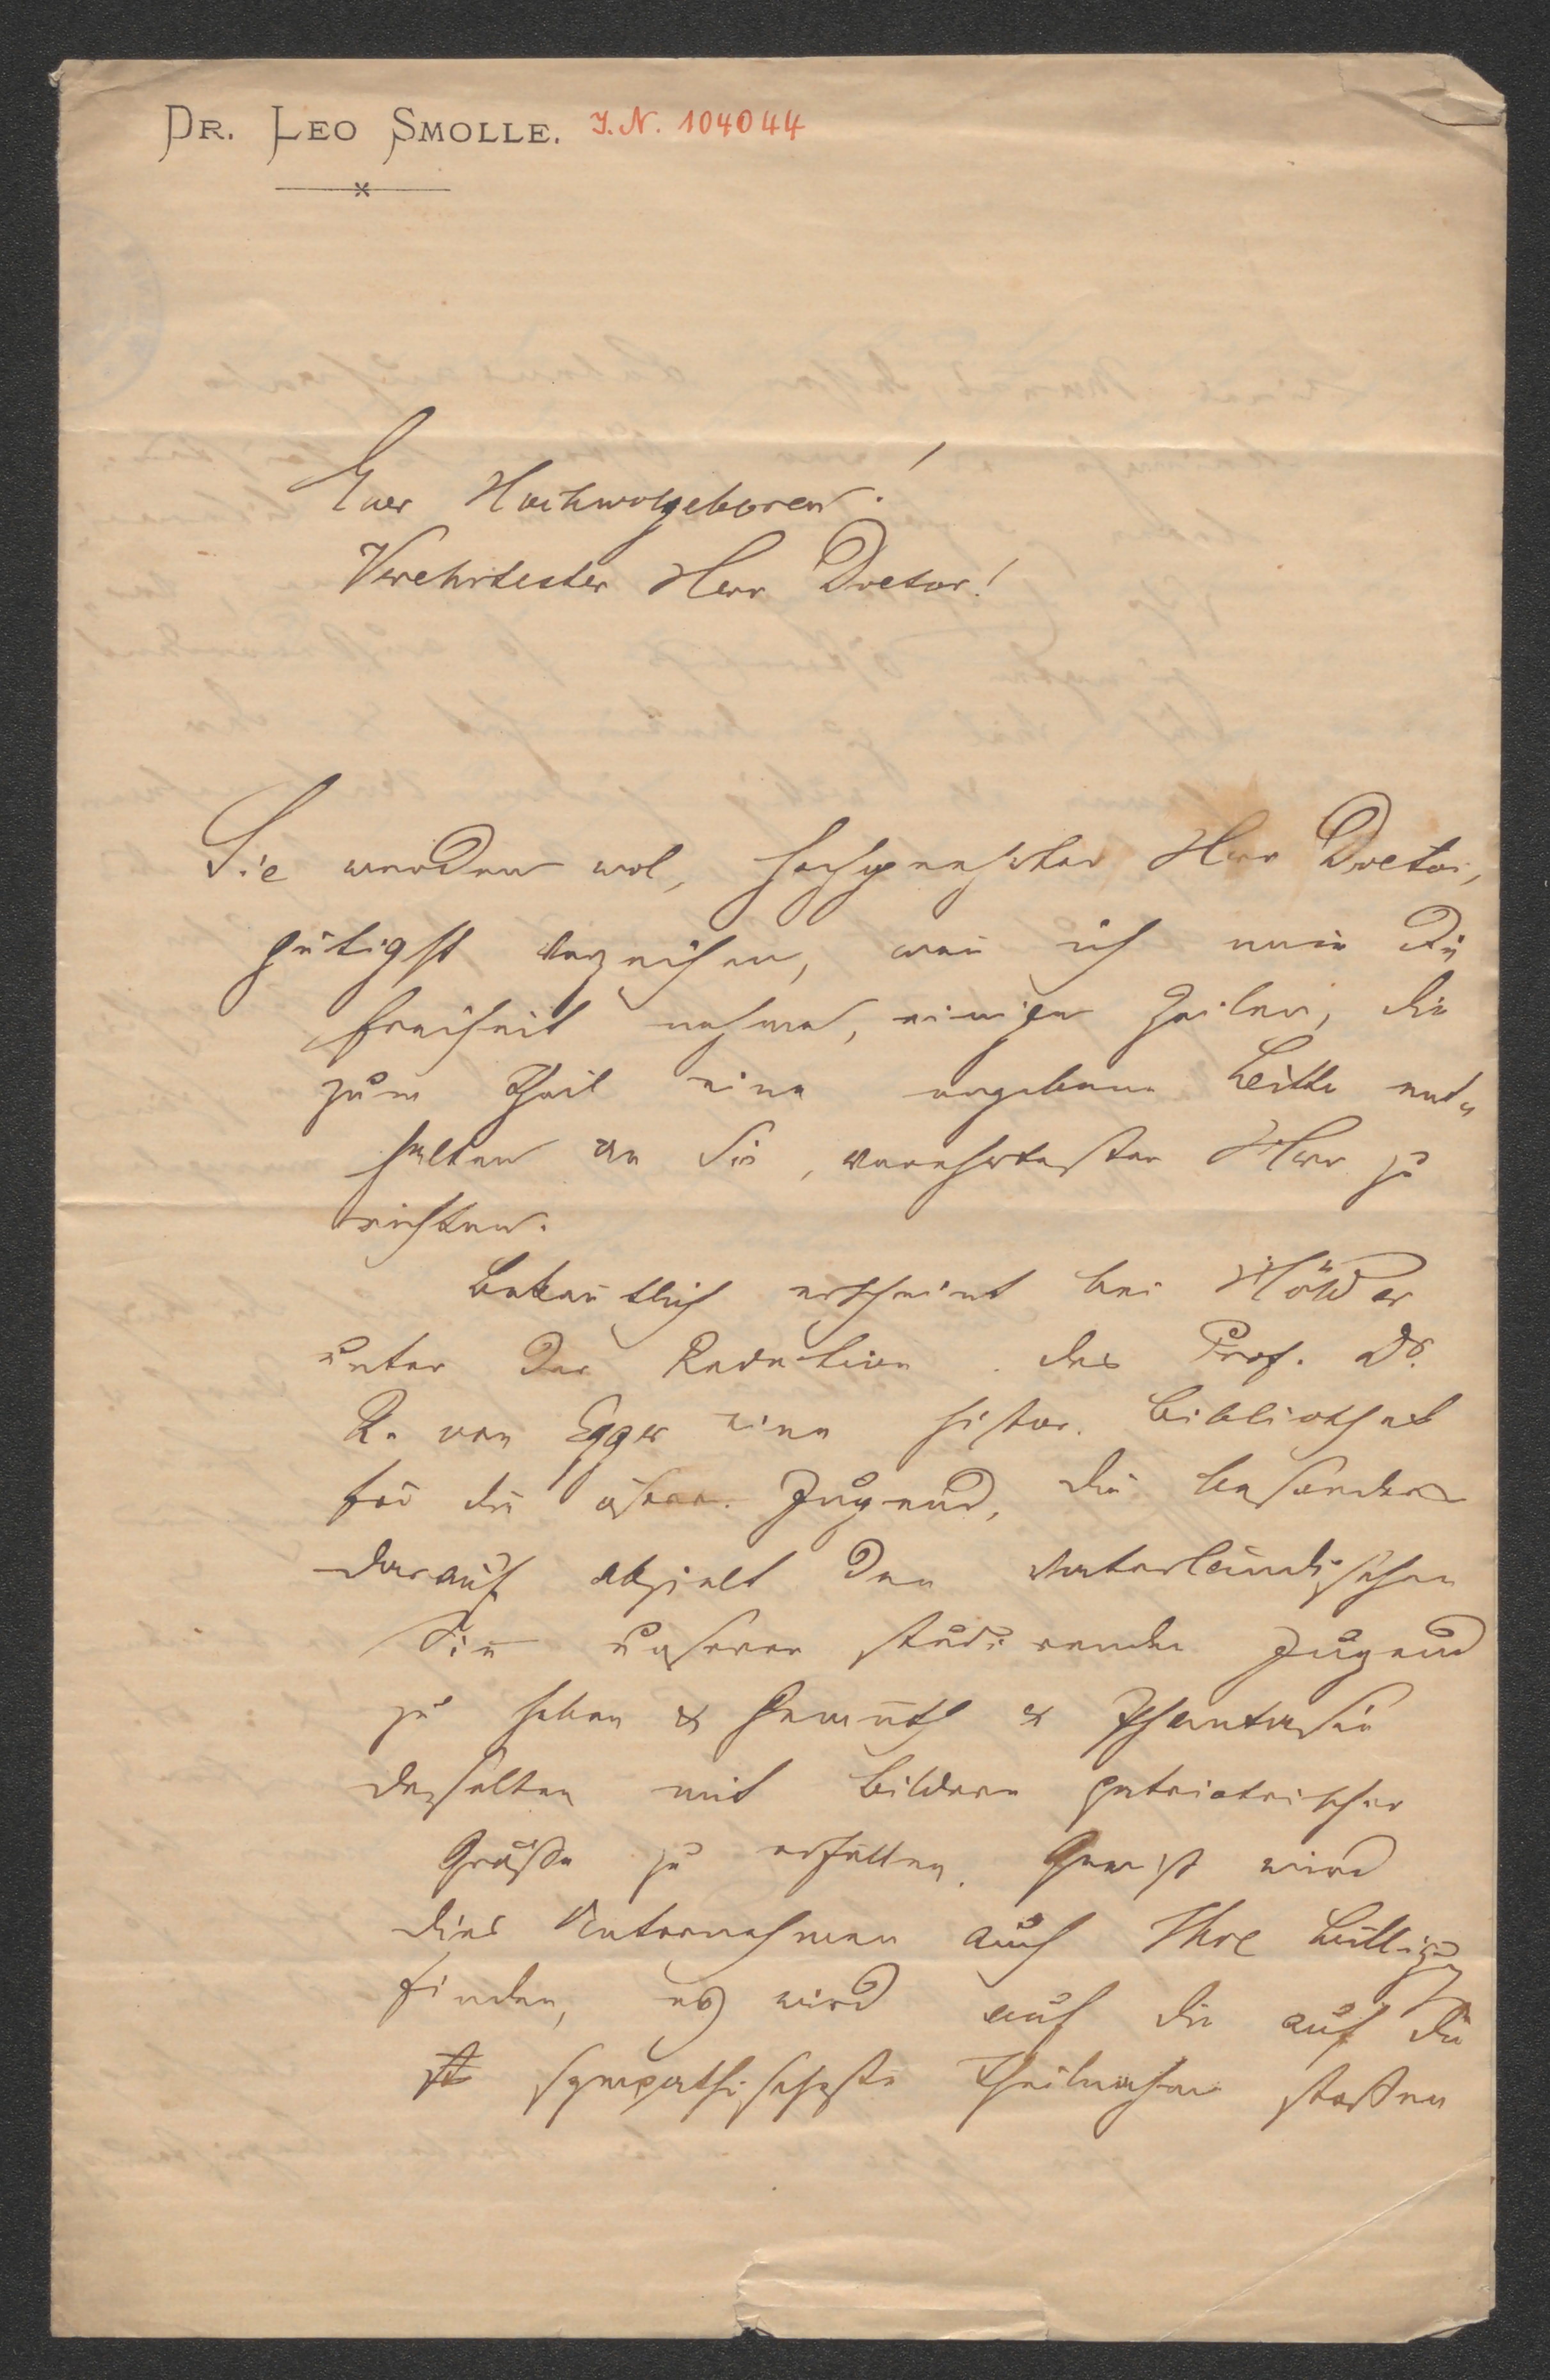 DR. LEO SMOLLE. I.N. 104044
Euer Hochwolgeboren!
Verehrtester Herr Doctor!
Sie werden wol, hochgeehrter Herr Doctor,
gütigst verzeihen, wen̄ ich mir die
Freiheit nehme, einige Zeilen, die
zum Theil eine ergebene Bitte ent-
halten an Sie, verehrtester Herr zu
richten.
Bekan̄tlich erscheint bei Hölder
unter der Redaction des Prof. Dr.
R. von Egger eine histor. Bibliothek
für die österr. Jugend, die besonders
darauf abzielt den vaterländischen
Sin̄ unserer studirenden Jugend
zu heben & Gemüth & Phantasie
derselben mit Bildern patriotischer
Größe zu erfüllen. Gewiß wird
dies Unternehmen auch Ihre Billigung
finden, es wird auf die auf die
sympathischste Theilnahme stoßen